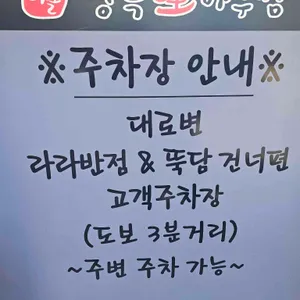 ※주차장 안내※
대로변
라라반점 & 뚝담 건너편
고객주차장
(도보 3분거리)
~주변 주차 가능~